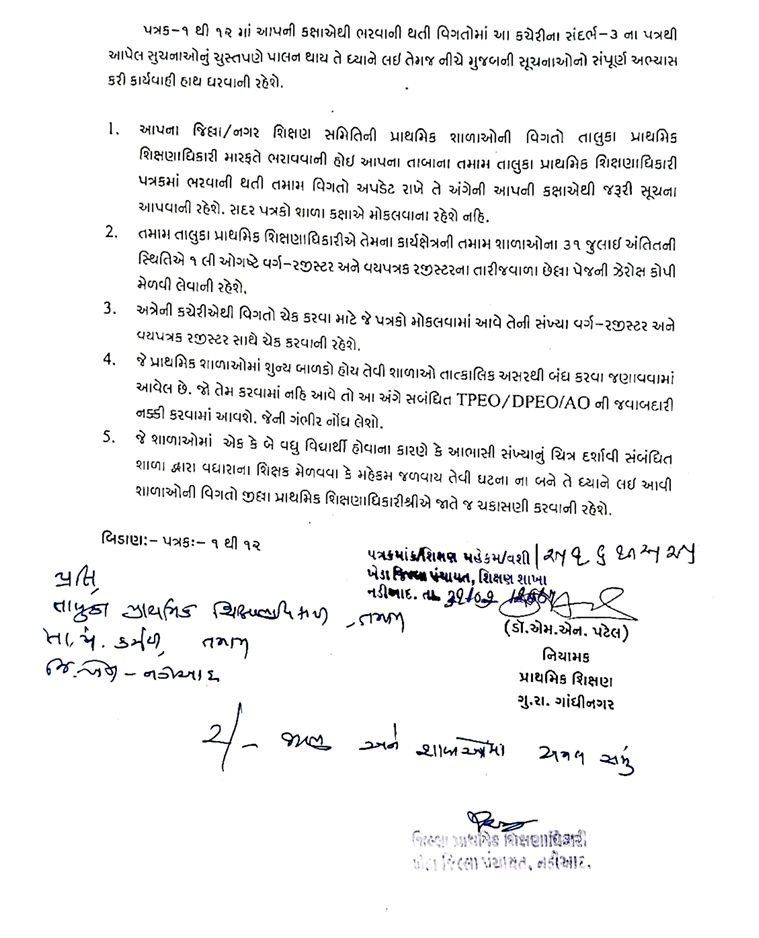 પત્રક-૧ થી ૧૨ માં આપની કક્ષાએથી ભરવાની થતી વિગતોમાં આ કચેરીના સંદર્ભ-૩ ના પત્રથી
આપેલ સુચનાઓનું ચુસ્તપણે પાલન થાય તે ધ્યાને લઇ તેમજ નીચે મુજબની સૂચનાઓનો સંપૂર્ણ અભ્યાસ
કરી કાર્યવાહી હાથ ધરવાની રહેશે.
1. આપના જિલ્લા/નગર શિક્ષણ સમિતિની પ્રાથમિક શાળાઓની વિગતો તાલુકા પ્રાથમિક
શિક્ષણાધિકારી મારફતે ભરાવવાની હોઇ આપના તાબાના તમામ તાલુકા પ્રાથમિક શિક્ષણાધિકારી
પત્રકમાં ભરવાની થતી તમામ વિગતો અપડેટ રાખે તે અંગેની આપની કક્ષાએથી જરૂરી સૂચના
આપવાની રહેશે. સદર પત્રકો શાળા કક્ષાએ મોકલવાના રહેશે નહિ.
2. તમામ તાલુકા પ્રાથમિક શિક્ષણાધિકારીએ તેમના કાર્યક્ષેત્રની તમામ શાળાઓના ૩૧ જુલાઇ અંતિતની
સ્થિતિએ ૧ લી ઓગષ્ટે વર્ગ-રજીસ્ટર અને વયપત્રક રજીસ્ટરના તારીજવાળા છેલ્લા પેજની ઝેરોક્ષ કોપી
મેળવી લેવાની રહેશે.
3. અત્રેની કચેરીએથી વિગતો ચેક કરવા માટે જે પત્રકો મોકલવામાં આવે તેની સંખ્યા વર્ગ-રજીસ્ટર અને
વયપત્રક રજીસ્ટર સાથે ચેક કરવાની રહેશે.
4. જે પ્રાથમિક શાળાઓમાં શુન્ય બાળકો હોય તેવી શાળાઓ તાત્કાલિક અસરથી બંધ કરવા જણાવવામાં
આવેલ છે. જો તેમ કરવામાં નહિ આવે તો આ અંગે સબંધિત TPEO/DPEO/AO ની જવાબદારી
નક્કી કરવામાં આવશે. જેની ગંભીર નોંધ લેશો.
5. જે શાળાઓમાં એક કે બે વધુ વિદ્યાર્થી હોવાના કારણે કે આભાસી સંખ્યાનું ચિત્ર દર્શાવી સંબંધિત
શાળા દ્વારા વધારાના શિક્ષક મેળવવા કે મહેકમ જળવાય તેવી ઘટના ના બને તે ધ્યાને લઇ આવી
શાળાઓની વિગતો જીલ્લા પ્રાથમિક શિક્ષણાધિકારીશ્રીએ જાતે જ ચકાસણી કરવાની રહેશે.
બિડાણ:- પત્રક:- ૧ થી ૧૨
પત્રકમાંક/શિક્ષણ મહેકમ/વશી
ખેડા જિલ્લા પંચાયત, શિક્ષણ શાખા
નડીઆદ. તા.
પ્રતિ,
તાલુકા પ્રાથમિક શિક્ષણાધિકારી, તમામ
તા.પં. કચેરી, તમામ
જિ.ખેડા - નડીઆદ
(ડૉ.એમ.એન. પટેલ)
નિયામક
પ્રાથમિક શિક્ષણ
ગુ.રા. ગાંધીનગર
2/- જાણ અને શાળાઓમાં અમલ સારું
જિલ્લા પ્રાથમિક શિક્ષણાધિકારી
ખેડા જિલ્લા પંચાયત, નડીઆદ.